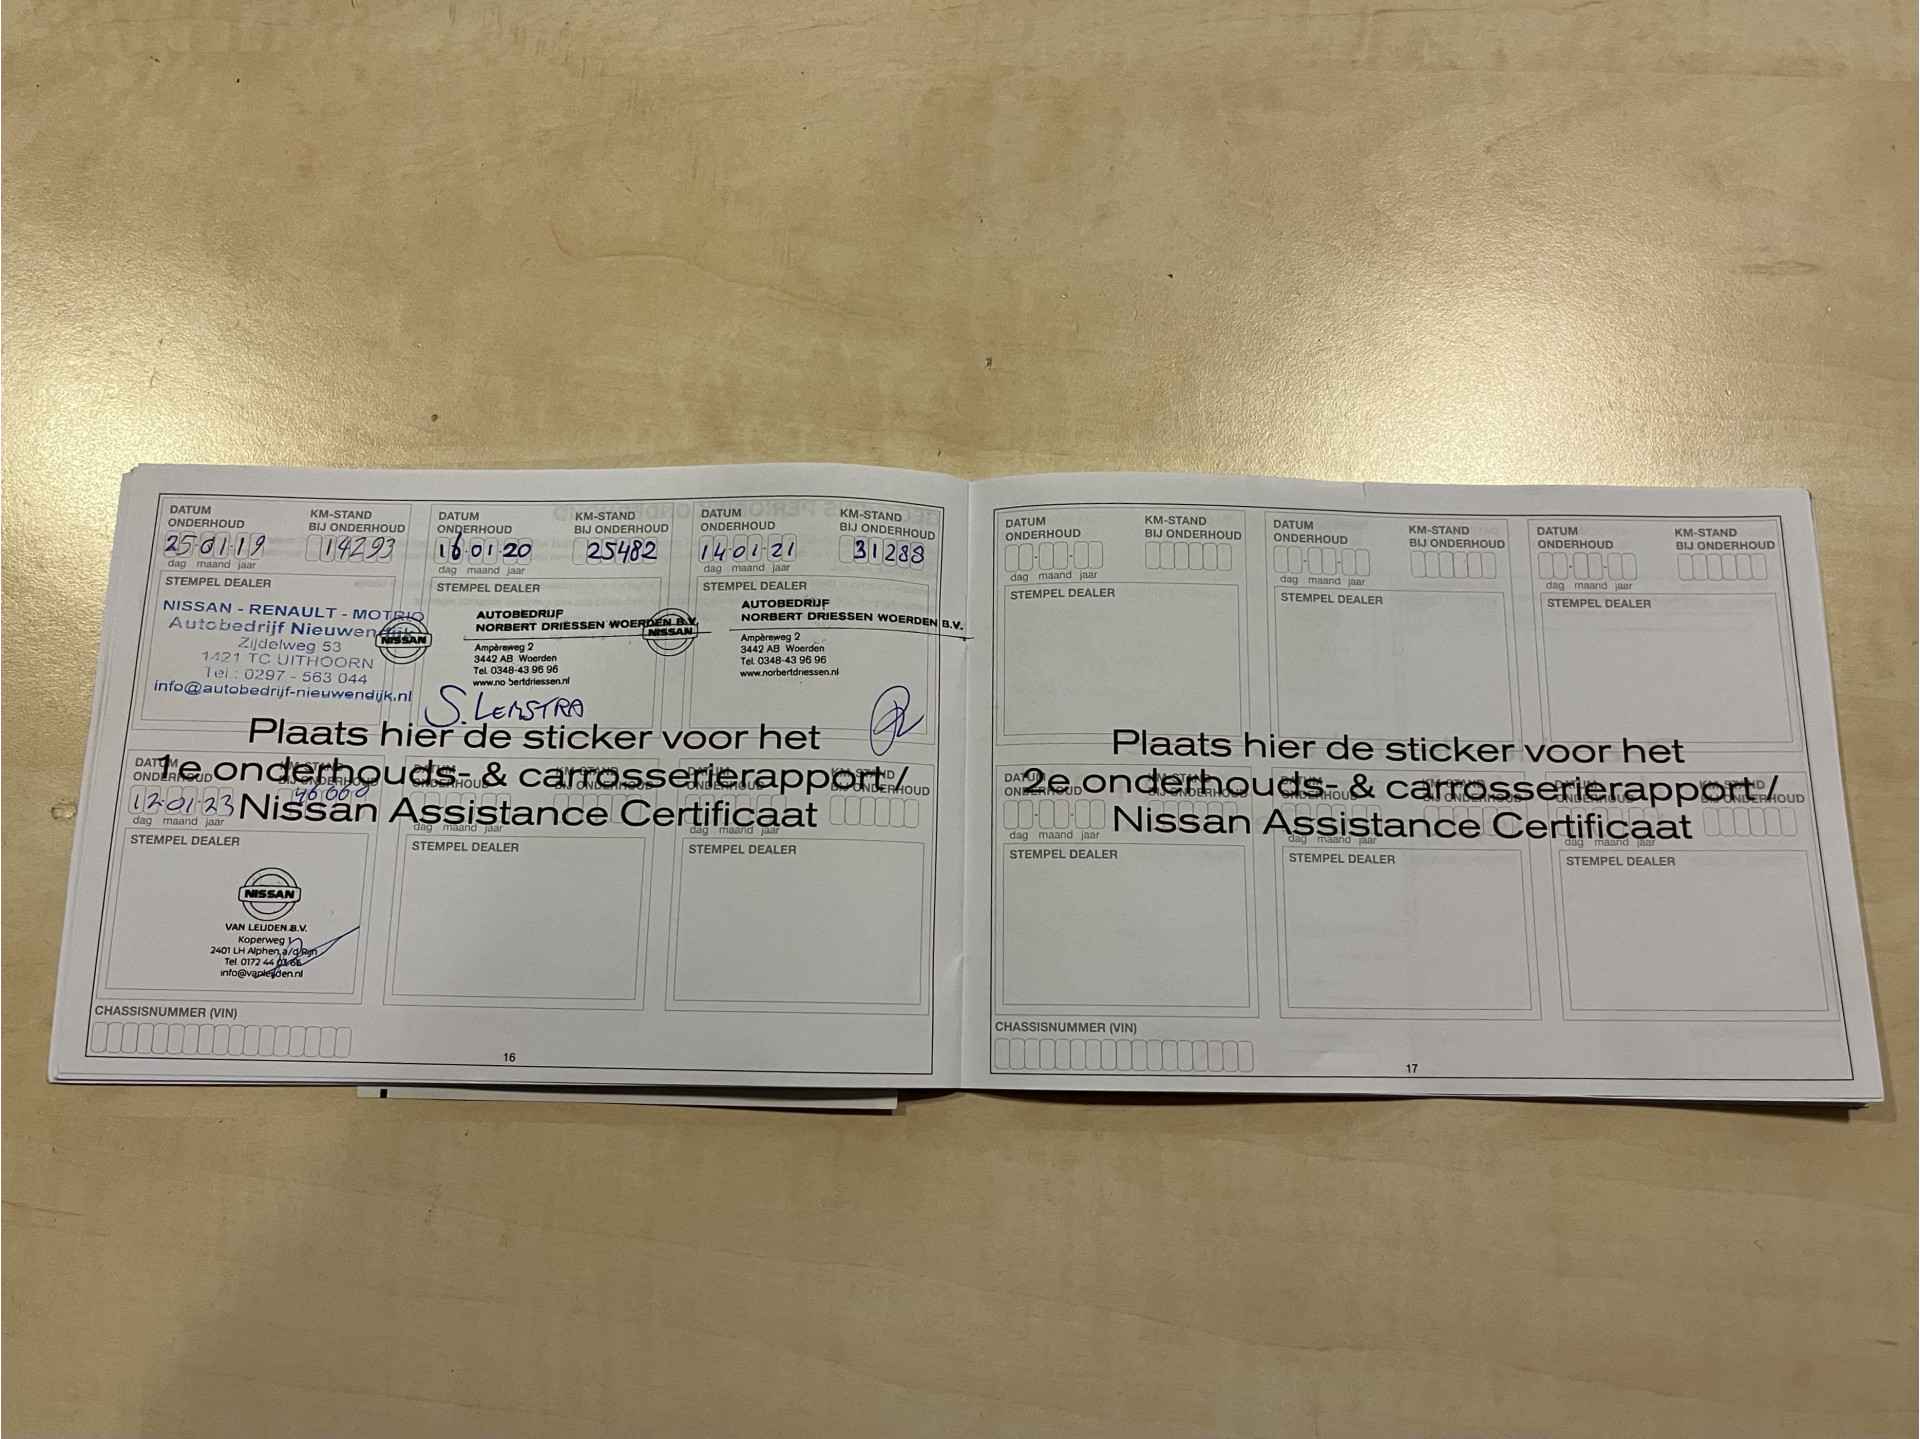 DATUM ONDERHOUD
KM-STAND BIJ ONDERHOUD
25-01-19
14293
dag maand jaar
STEMPEL DEALER
NISSAN - RENAULT - MOTRIO
Autobedrijf Nieuwendijk
Zijdelweg 53
1421 TC UITHOORN
Tel.: 0297 - 563 044
info@autobedrijf-nieuwendijk.nl
DATUM ONDERHOUD
KM-STAND BIJ ONDERHOUD
16-01-20
25482
dag maand jaar
STEMPEL DEALER
NISSAN
AUTOBEDRIJF
NORBERT DRIESSEN WOERDEN B.V.
Ampèreweg 2
3442 AB Woerden
Tel. 0348-43 96 96
www.norbertdriessen.nl
S. LEMSTRA
DATUM ONDERHOUD
KM-STAND BIJ ONDERHOUD
14-01-21
31288
dag maand jaar
STEMPEL DEALER
NISSAN
AUTOBEDRIJF
NORBERT DRIESSEN WOERDEN B.V.
Ampèreweg 2
3442 AB Woerden
Tel. 0348-43 96 96
www.norbertdriessen.nl
Plaats hier de sticker voor het
1e onderhouds- & carrosserierapport /
Nissan Assistance Certificaat
DATUM ONDERHOUD
KM-STAND BIJ ONDERHOUD
12-01-23
dag maand jaar
STEMPEL DEALER
NISSAN
VAN LEIJDEN B.V.
Koperweg 1
2401 LH Alphen a/d Rijn
info@vanleijden.nl
DATUM ONDERHOUD
KM-STAND BIJ ONDERHOUD
dag maand jaar
STEMPEL DEALER
DATUM ONDERHOUD
KM-STAND BIJ ONDERHOUD
dag maand jaar
STEMPEL DEALER
CHASSISNUMMER (VIN)
16
DATUM ONDERHOUD
KM-STAND BIJ ONDERHOUD
dag maand jaar
STEMPEL DEALER
DATUM ONDERHOUD
KM-STAND BIJ ONDERHOUD
dag maand jaar
STEMPEL DEALER
DATUM ONDERHOUD
KM-STAND BIJ ONDERHOUD
dag maand jaar
STEMPEL DEALER
Plaats hier de sticker voor het
2e onderhouds- & carrosserierapport /
Nissan Assistance Certificaat
DATUM ONDERHOUD
KM-STAND BIJ ONDERHOUD
dag maand jaar
STEMPEL DEALER
DATUM ONDERHOUD
KM-STAND BIJ ONDERHOUD
dag maand jaar
STEMPEL DEALER
DATUM ONDERHOUD
KM-STAND BIJ ONDERHOUD
dag maand jaar
STEMPEL DEALER
CHASSISNUMMER (VIN)
17